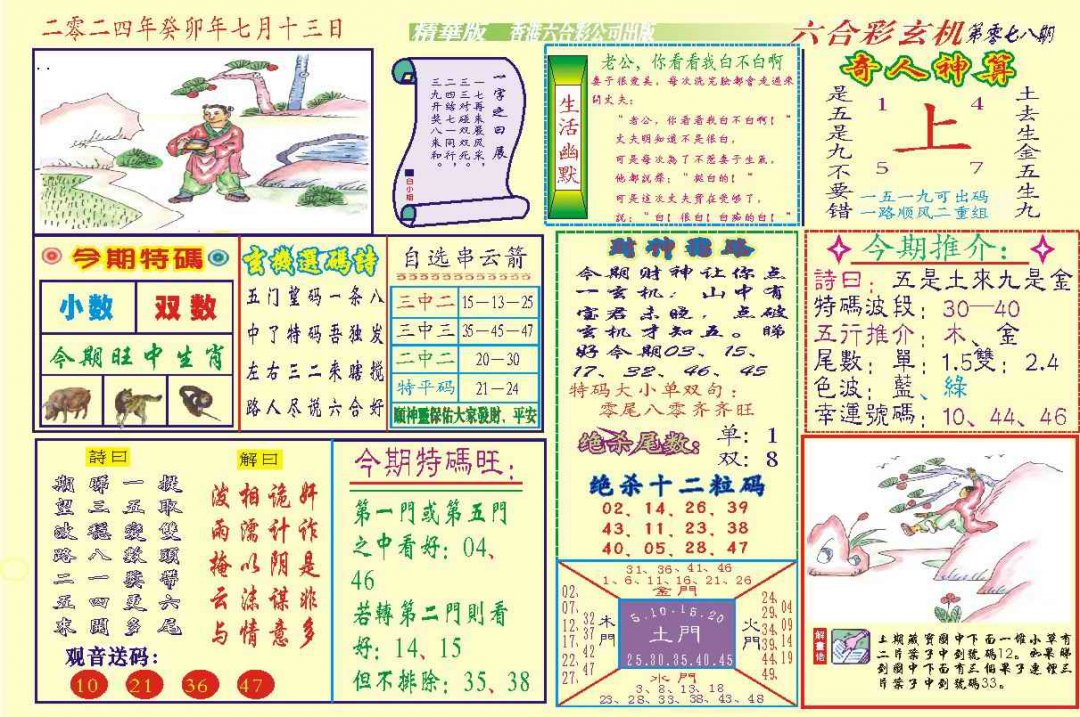 二零二四年癸卯年七月十三日
精華版 香港六合彩公司出版
六合彩玄机第零七八期
一字之曰展
一七再来展风采，
二三三对双双死。
三九开奖八来和。
白小姐
生活幽默
老公，你看看我白不白啊
妻子很爱美，每次洗完脸都會走過來
問丈夫：
“老公，你看看我白不白啊！”
丈夫明知道不是很白，
可是每次為了不惹妻子生氣，
他都說聲：“挺白的！”
可是這次丈夫實在受够了，
説：“白！很白！白痴的白！”
奇人神算
是五是九不要错
1 4
上
5 7
土去生金五生九
一五一九可出码
一路顺风二重组
今期特碼
小数 双数
今期旺中生肖
玄機選碼詩
五门望码一条八
中了特码吾独发
左右三二来瞎搅
路人尽说六合好
自选串云箭
三中二 15—13—25
三中三 35—45—47
二中二 20—30
特平码 21—24
願神靈保佑大家發財、平安
财神指路
今期财神让你点
一玄机：山中有
宝君未晓，点破
玄机才知五。睇
好今期03、15、
17、32、46、45
特码大小单双句：
零尾八零齐齐旺
绝杀尾数：
单：1
双：8
绝杀十二粒码
02、14、26、39
43、11、23、38
40、05、28、47
今期推介：
詩曰：五是土來九是金
特碼波段：30—40
五行推介：木、金
尾數：單：1.5雙：2.4
色波：藍、綠
幸運號碼：10、44、46
詩曰
期睇一投
望三五取
波穩变雙
路八数頭
二一奖帶
五四更六
來開多尾
解曰
波相诡奸
雨濡计诈
掩以阴是
云沫谋非
与情意多
观音送码：
10 21 36 47
今期特碼旺：
第一門或第五門
之中看好：04、
46
若轉第二門則看
好：14、15
但不排除：35、38
31、36、41、46
1、6、11、16、21、26
金門
02、07、12、17、22、27、
32 37 42 47
木門
5.10-15.20
土門
25.30.35.40.45
火門
24、29、34、39、44、49
04 09 14 19
水門
3、8、13、18
23、28、33、38、43、48
解畫佬
上期藏寶圖中下面一堆小草有
二片葉子中到號碼12。如果睇
到圖中下面有三個果子連裡三
片葉子中到號碼33。